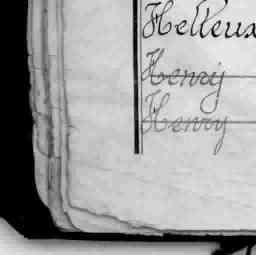 Helleux
Henry
Henry